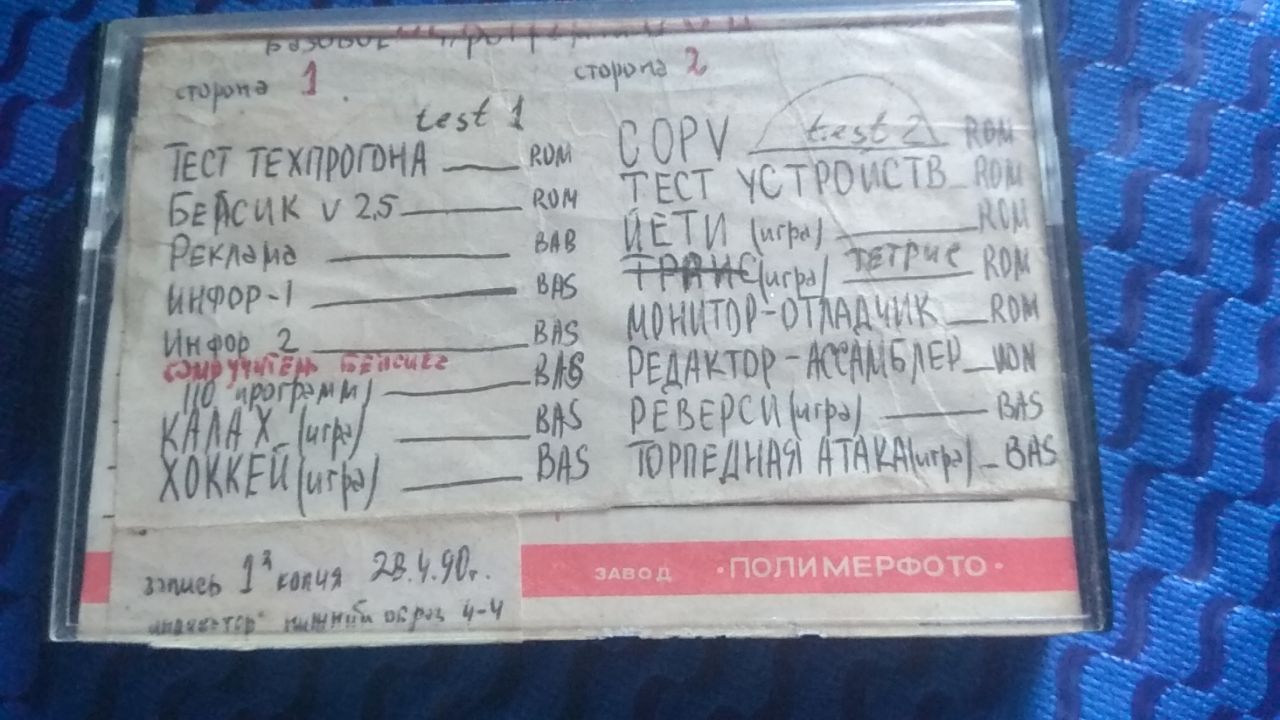 сторона 1
test 1
ТЕСТ ТЕХПРОГОНА ROM
БЕЙСИК V 2,5 ROM
Реклама BAB
ИНФОР-1 BAS
Инфор 2 BAS
Бейсика
10 программ) BAS
КАЛАХ (игра) BAS
ХОККЕЙ (игра) BAS
сторона 2
COPY test 2 ROM
ТЕСТ УСТРОЙСТВ ROM
ЙЕТИ (игра) ROM
(игра) ТЕТРИС ROM
МОНИТОР-ОТЛАДЧИК ROM
РЕДАКТОР-АССАМБЛЕР MON
РЕВЕРСИ (игра) BAS
ТОРПЕДНАЯ АТАКА (игра) BAS
запись 1я копия 28.4.90г.
нижний образ 4-4
ЗАВОД ·ПОЛИМЕРФОТО·